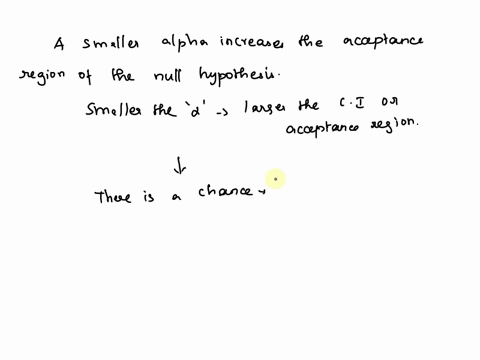 A smaller alpha increases the acceptance
region of the null hypothesis.
Smaller the 'α' → larger the C.I or
acceptance region.
↓
There is a chance